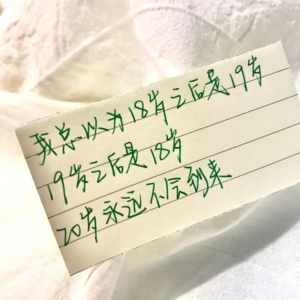 我总以为18岁之后是19岁
19岁之后是18岁
20岁永远不会到来